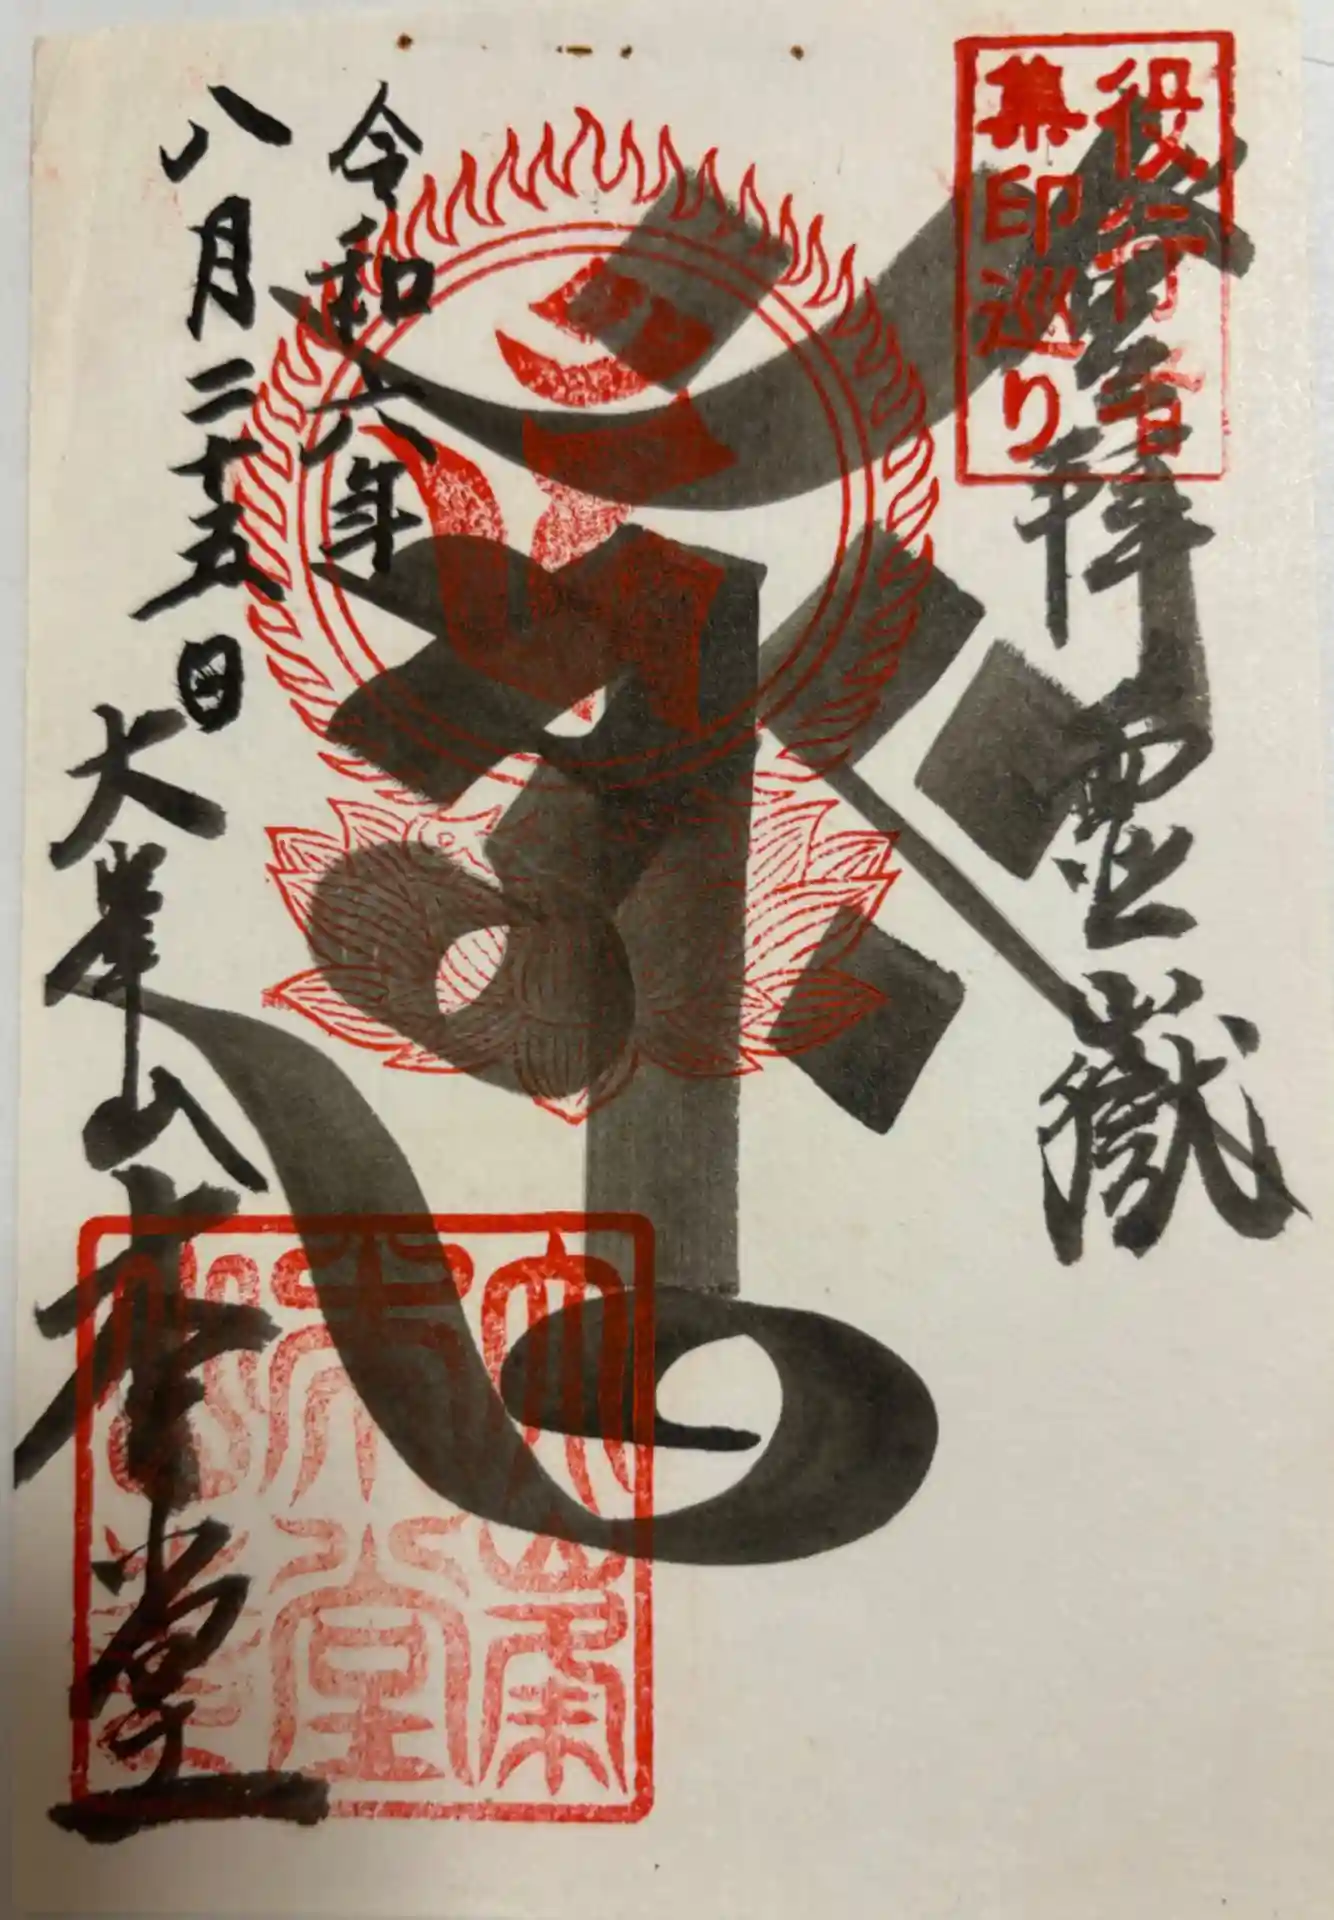 役行者
集印巡り
登拜
霊嶽
令和六年
八月二十五日
大峯山
本堂